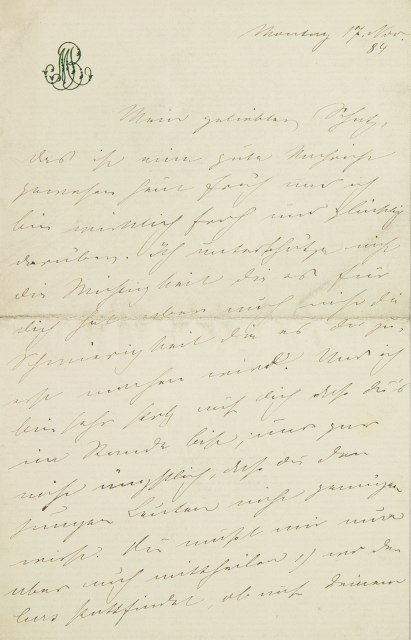 Montag 17. Nov.
84
Mein geliebter Schatz,
das ist eine gute Nachricht
gewesen heut früh und ich
bin wirklich froh und glücklich
darüber. Ich unterschätze nicht
die Wichtigkeit die es für
dich hat, aber auch nicht die
Schwierigkeit die es dir
machen wird. Und ich
bin sehr stolz auf dich daß du's
im Stande bist, und gar
nicht ängstlich, daß du den
jungen Leuten nicht genügen
wirst. Du mußt mir nur
aber auch mittheilen 1) wo der
Curs stattfindet, ob auf deinem